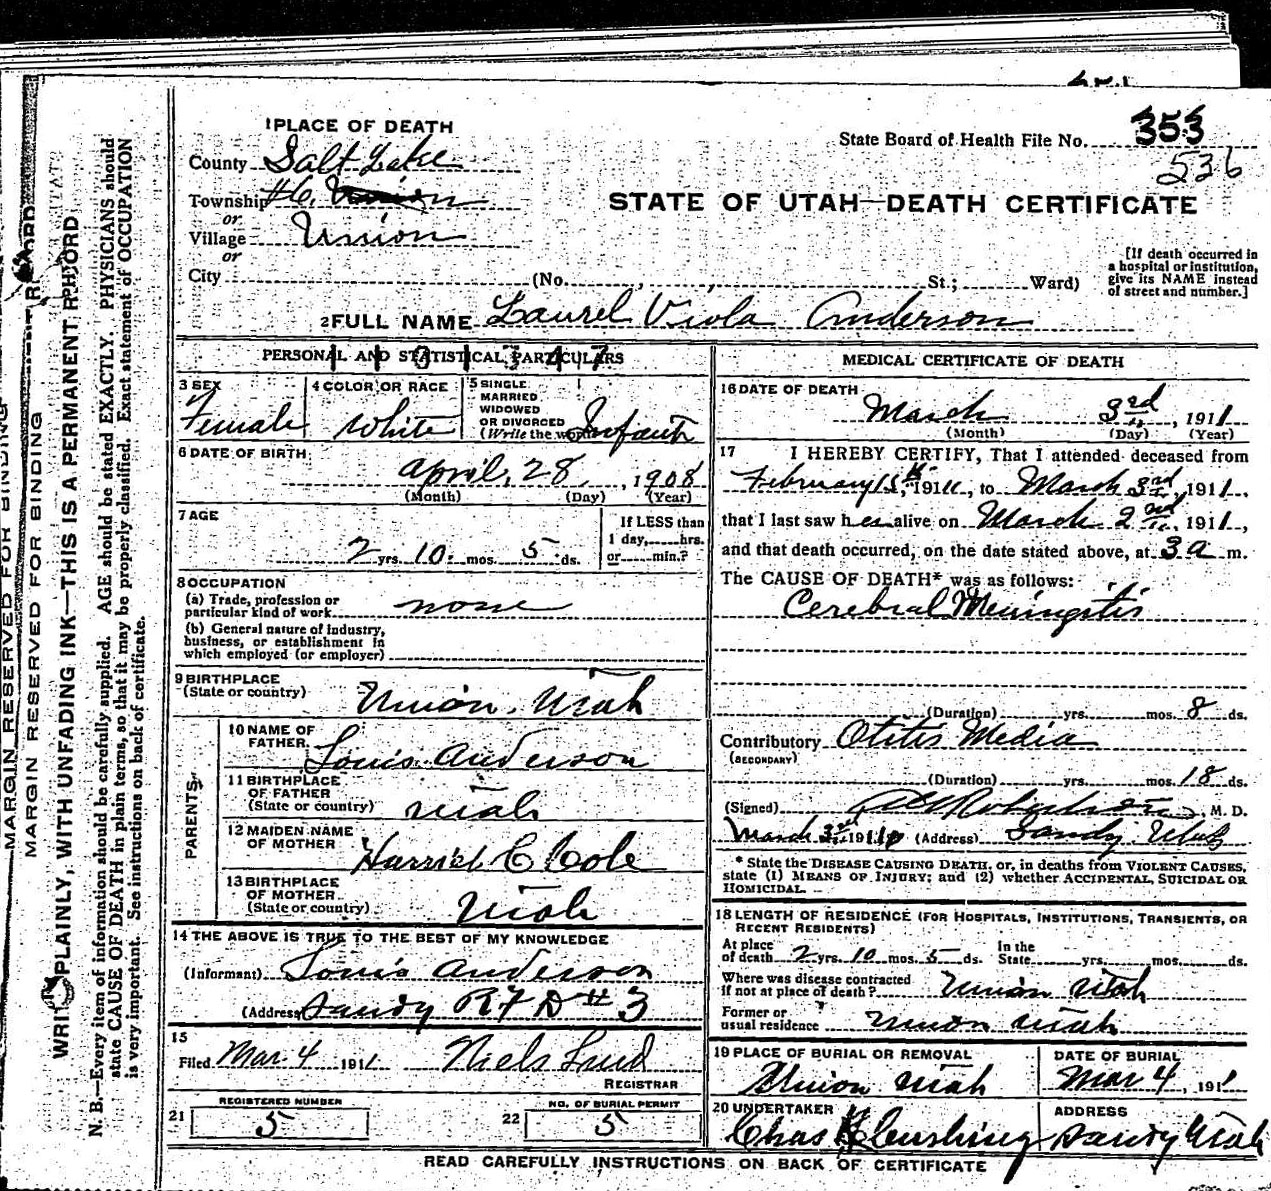 353
State Board of Health File No.
536
1 PLACE OF DEATH
County Salt Lake
Township #6, Union
or
Village Union
or
City (No. , St.; Ward)
STATE OF UTAH—DEATH CERTIFICATE
[If death occurred in
a hospital or institution,
give its NAME instead
of street and number.]
2 FULL NAME Laurel Viola Anderson
PERSONAL AND STATISTICAL PARTICULARS
3 SEX
Female
4 COLOR OR RACE
White
5 SINGLE
MARRIED
WIDOWED
OR DIVORCED
(Write the word) Infant
6 DATE OF BIRTH
April, 28, 1908
(Month) (Day) (Year)
7 AGE
2 yrs. 10 mos. 5 ds.
If LESS than
1 day, hrs.
or min.?
8 OCCUPATION
(a) Trade, profession or
particular kind of work none
(b) General nature of industry,
business, or establishment in
which employed (or employer)
9 BIRTHPLACE
(State or country) Union, Utah
PARENTS
10 NAME OF
FATHER Louis Anderson
11 BIRTHPLACE
OF FATHER
(State or country) Utah
12 MAIDEN NAME
OF MOTHER Harriet C Cole
13 BIRTHPLACE
OF MOTHER
(State or country) Utah
14 THE ABOVE IS TRUE TO THE BEST OF MY KNOWLEDGE
(Informant) Louis Anderson
(Address Sandy RFD #3
15
Filed Mar. 4 1911 Niels Lind
REGISTRAR
REGISTERED NUMBER
21 5
NO. OF BURIAL PERMIT
22 5
MEDICAL CERTIFICATE OF DEATH
16 DATE OF DEATH
March 3rd, 1911
(Month) (Day) (Year)
17 I HEREBY CERTIFY, That I attended deceased from
February 15th, 1911, to March 3rd, 1911,
that I last saw her alive on March 2nd, 1911,
and that death occurred, on the date stated above, at 3 a m.
The CAUSE OF DEATH* was as follows:
Cerebral Meningitis
(Duration) yrs. mos. 8 ds.
Contributory Otitis Media
(SECONDARY)
(Duration) yrs. mos. 18 ds.
(Signed) Robertson, M. D.
March 3rd 1911 (Address) Sandy, Utah
* State the DISEASE CAUSING DEATH, or, in deaths from VIOLENT CAUSES,
state (1) MEANS OF INJURY; and (2) whether ACCIDENTAL, SUICIDAL OR
HOMICIDAL.
18 LENGTH OF RESIDENCE (FOR HOSPITALS, INSTITUTIONS, TRANSIENTS, OR
RECENT RESIDENTS)
At place
of death 2 yrs. 10 mos. 5 ds. In the
State yrs. mos. ds.
Where was disease contracted
if not at place of death? Union Utah
Former or
usual residence Union Utah
19 PLACE OF BURIAL OR REMOVAL
Union Utah
DATE OF BURIAL
Mar 4, 1911
20 UNDERTAKER
Chas Cushing
ADDRESS
Sandy Utah
READ CAREFULLY INSTRUCTIONS ON BACK OF CERTIFICATE
MARGIN RESERVED FOR BINDING
MARGIN RESERVED FOR BINDING
WRITE PLAINLY, WITH UNFADING INK—THIS IS A PERMANENT RECORD
N. B.—Every item of information should be carefully supplied. AGE should be stated EXACTLY. PHYSICIANS should
state CAUSE OF DEATH in plain terms, so that it may be properly classified. Exact statement of OCCUPATION
is very important. See instructions on back of certificate.